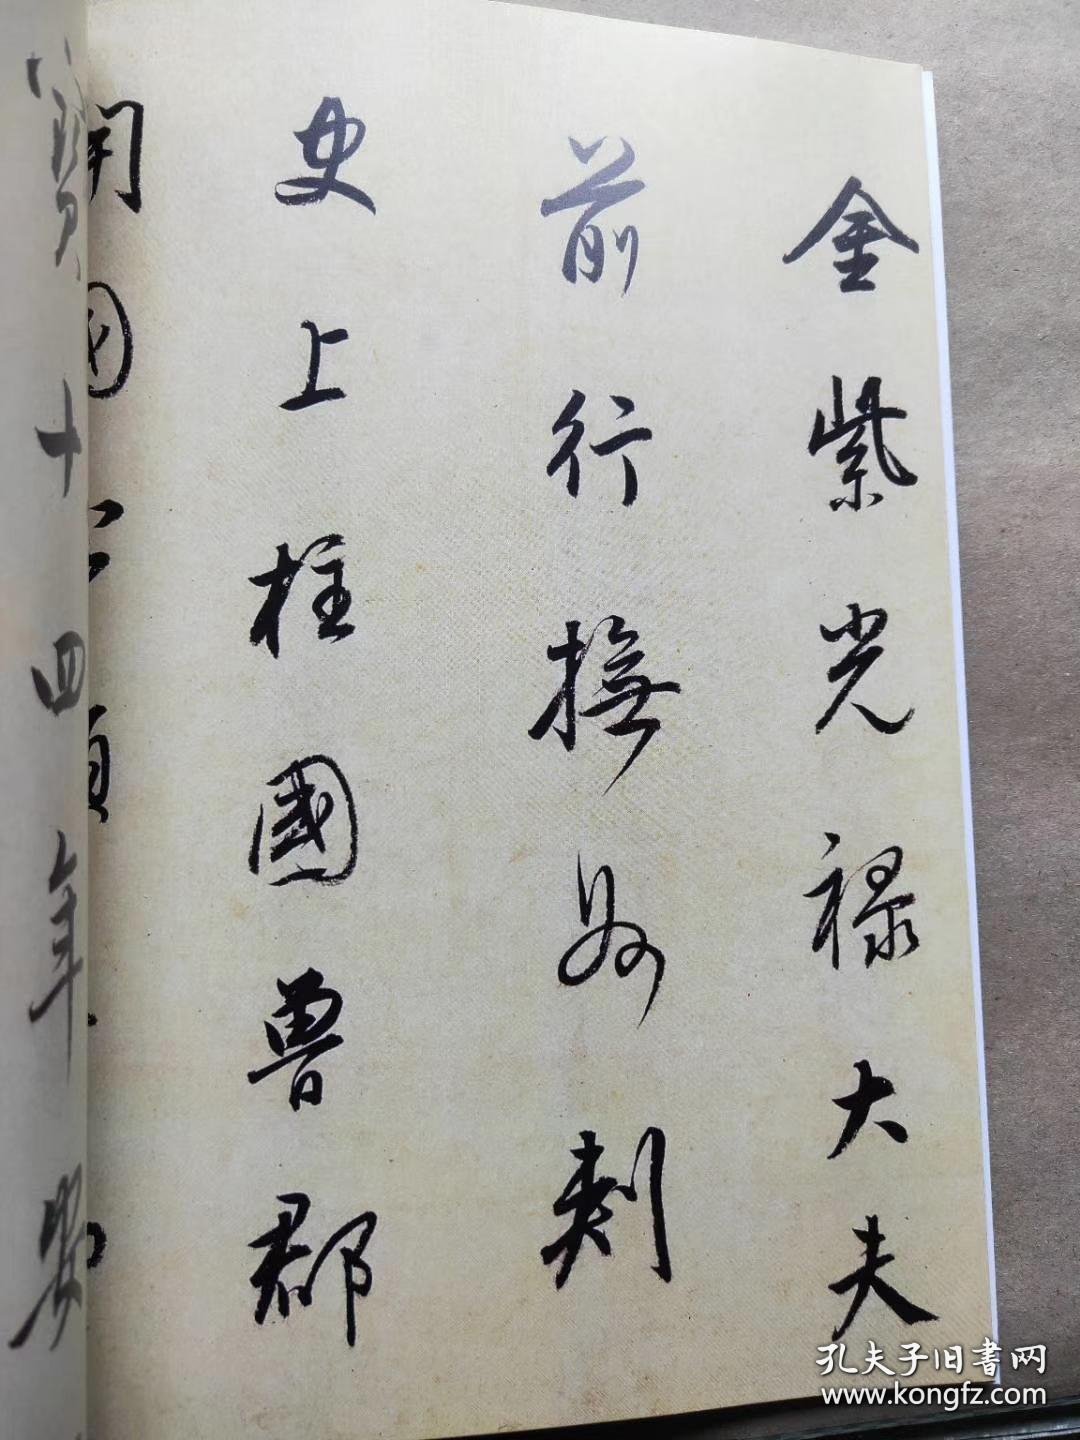 金紫光禄大夫
前行撫州刺
史上柱國魯郡
開國
十四年
孔夫子旧書网
www.kongfz.com